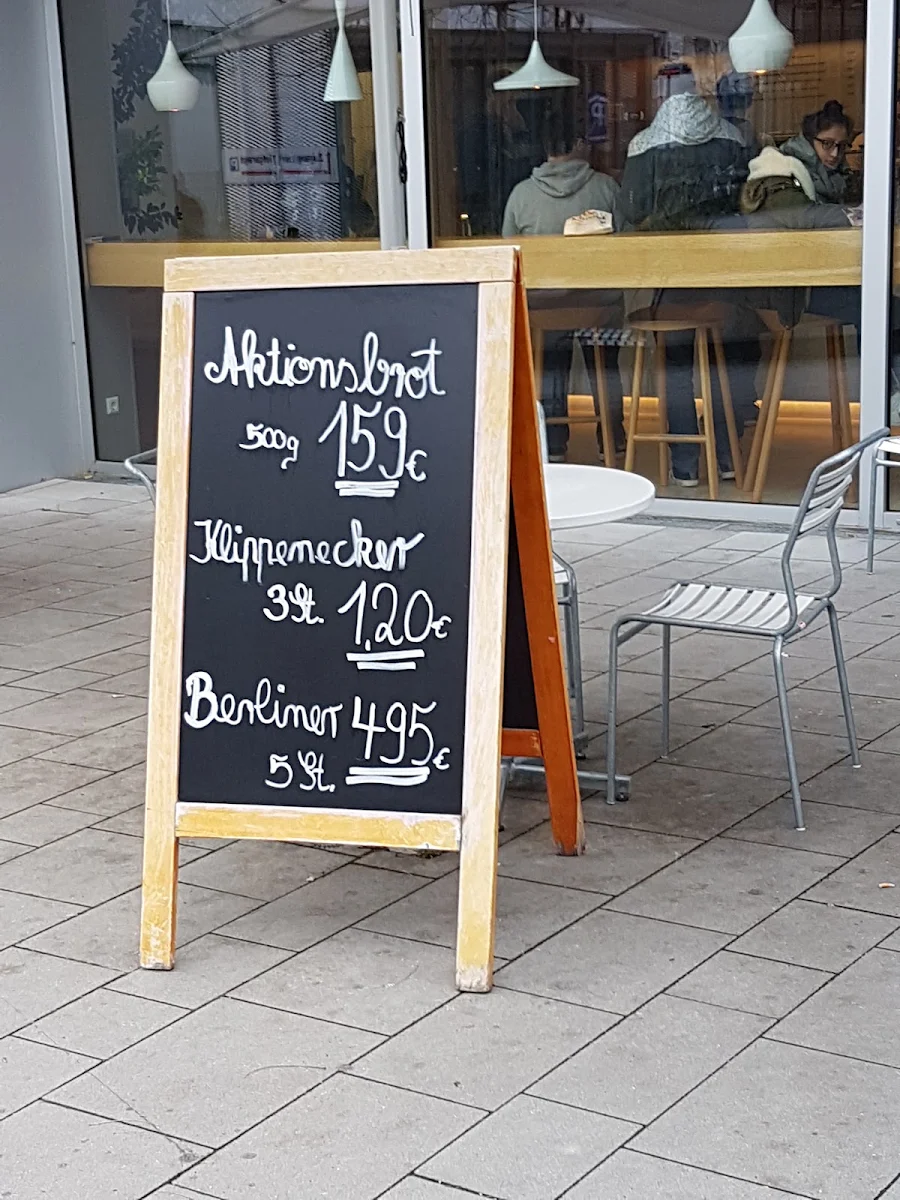 Aktionsbrot
500g 159€
Klippenecker
3St. 1,20€
Berliner 495€
5 St.